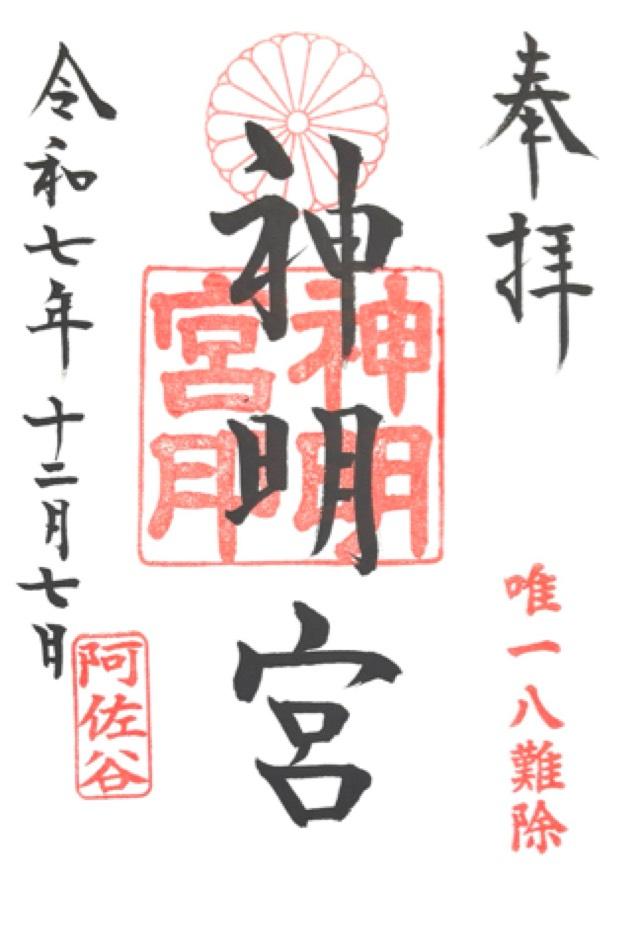 奉拝
唯一八難除
神明宮
神明
宮印
令和七年十二月七日
阿佐谷